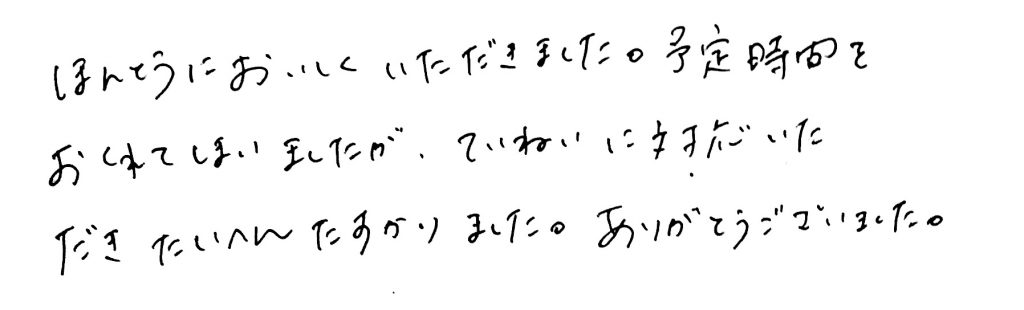 ほんとうにおいしくいただきました。予定時間を
おくれてしまいましたが、ていねいに対応いた
だきたいへんたすかりました。ありがとうございました。